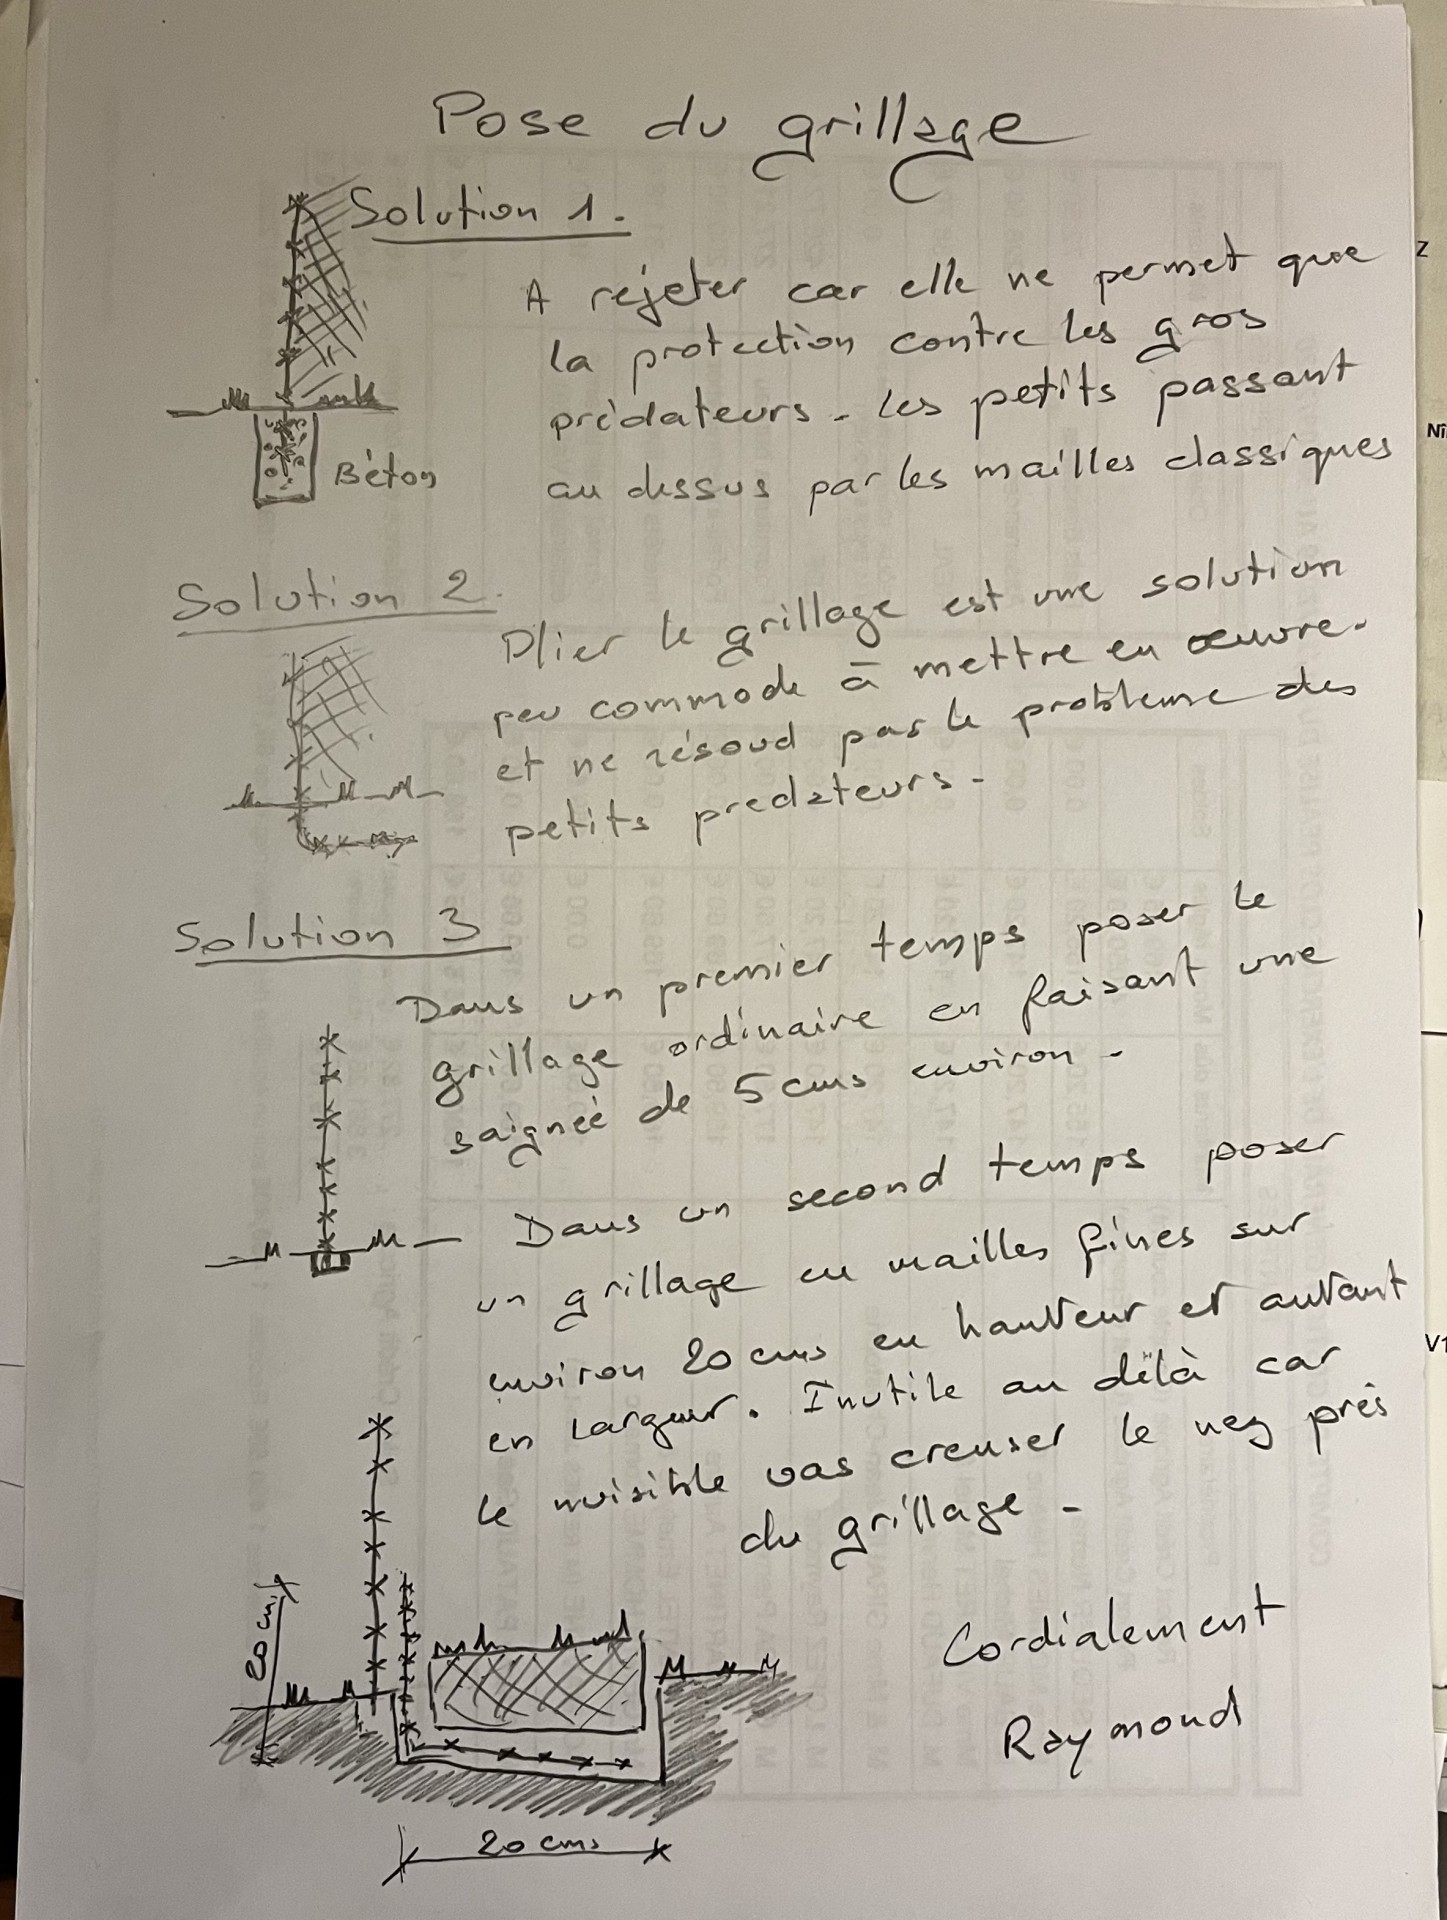 Pose du grillage
Solution 1.
A rejeter car elle ne permet que
la protection contre les gros
prédateurs - les petits passant
au dessus par les mailles classiques
Béton
Solution 2.
Plier le grillage est une solution
peu commode à mettre en œuvre.
et ne résoud pas le problème des
petits predateurs -
Solution 3
Dans un premier temps poser le
grillage ordinaire en faisant une
saignée de 5 cms environ -
Dans un second temps poser
un grillage en mailles fines sur
environ 20 cms en hauteur et autant
en largeur. Inutile au délà car
le nuisible vas creuser le nez près
du grillage -
20 cm
20 cms
Cordialement
Raymond